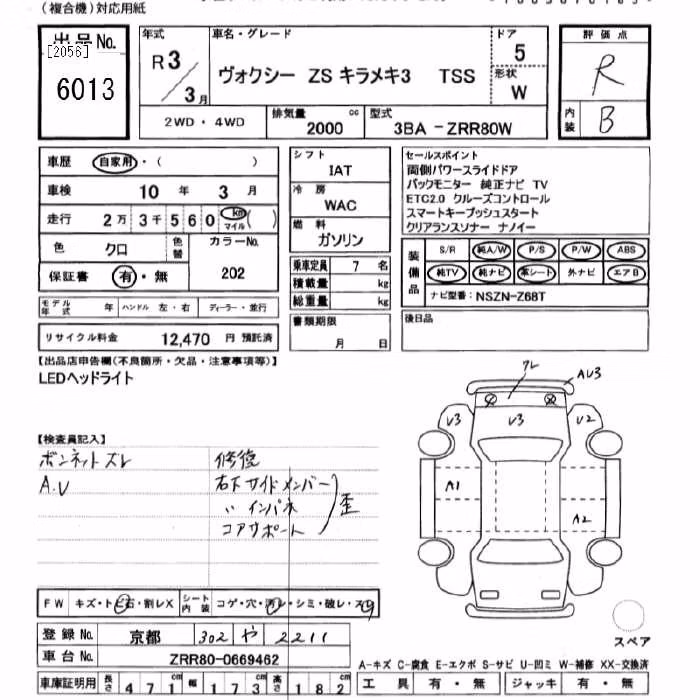 (複合機)対応用紙
出品No.
[2056]
6013
年式
R3/3月
車名・グレード
ヴォクシー ZS キラメキ3 TSS
ドア
5
形状
W
2WD・4WD
排気量
2000 cc
型式
3BA-ZRR80W
評価点
R
内装
B
車歴 自家用・( )
車検 10年 3月
走行 2万3千560 km マイル ( )
色 クロ 色替 カラーNo. 202
保証書 有・無
モデル年式 年 ハンドル 左・右 ディーラー・並行
リサイクル料金 12,470 円 預託済
シフト
IAT
冷房
WAC
燃料
ガソリン
乗車定員 7 名
積載量 kg
総重量 kg
書類期限
月 日
セールスポイント
両側パワースライドドア
バックモニター 純正ナビ TV
ETC2.0 クルーズコントロール
スマートキープッシュスタート
クリアランスソナー ナノイー
装備品
S/R 純A/W P/S P/W ABS
純TV 純ナビ 革シート 外ナビ エアB
ナビ型番: NSZN-Z68T
後日品
【出品店申告欄(不良箇所・欠品・注意事項等)】
LEDヘッドライト
【検査員記入】
ボンネットズレ
A.U
修復
右下サイドメンバー
〃 インパネ
コアサポート
歪
ズレ
AU3
U3
U3
U2
A1
A2
FW キズ・トビ石・割レX シート内装 コゲ・穴・汚レ・シミ・破レ・スリ
登録No. 京都 302 や 2211
車台No. ZRR80-0669462
車庫証明用 長さ 471cm 幅 173cm 高さ 182cm
スペア
A-キズ C-腐食 E-エクボ S-サビ U-凹ミ W-補修 XX-交換済
工具 有・無 ジャッキ 有・無